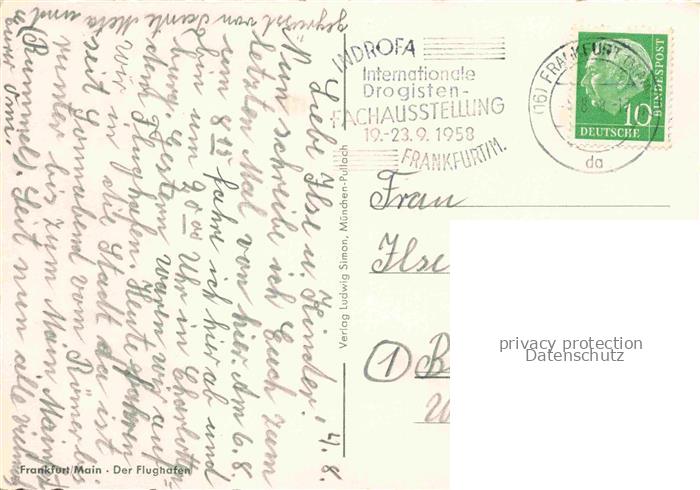 4. 8.
Liebe Ilse u. Kinder!
Nun schreibe ich Euch zum
letzten Mal von hier. Am 6.8.
um 8 15 fahre ich hier ab und
bin um 20 00 Uhr in Charlotten-
burg. Gestern waren wir auf
dem Flughafen. Heute fahren
wir in die Stadt da ist
seit Sonnabend vom Römer bis
runter bis zum Main Mainfest
(Rummel). Seit nun alle vielmals
gegrüsst von Tante Meta und
Eurer Omi.
Frankfurt/Main · Der Flughafen
Verlag Ludwig Simon, München-Pullach
INDROFA
Internationale
Drogisten-
FACHAUSSTELLUNG
19.-23.9.1958
FRANKFURT/M.
(16) FRANKFURT
da
10
DEUTSCHE
BUNDESPOST
Frau
Ilse
(1) B
privacy protection
Datenschutz